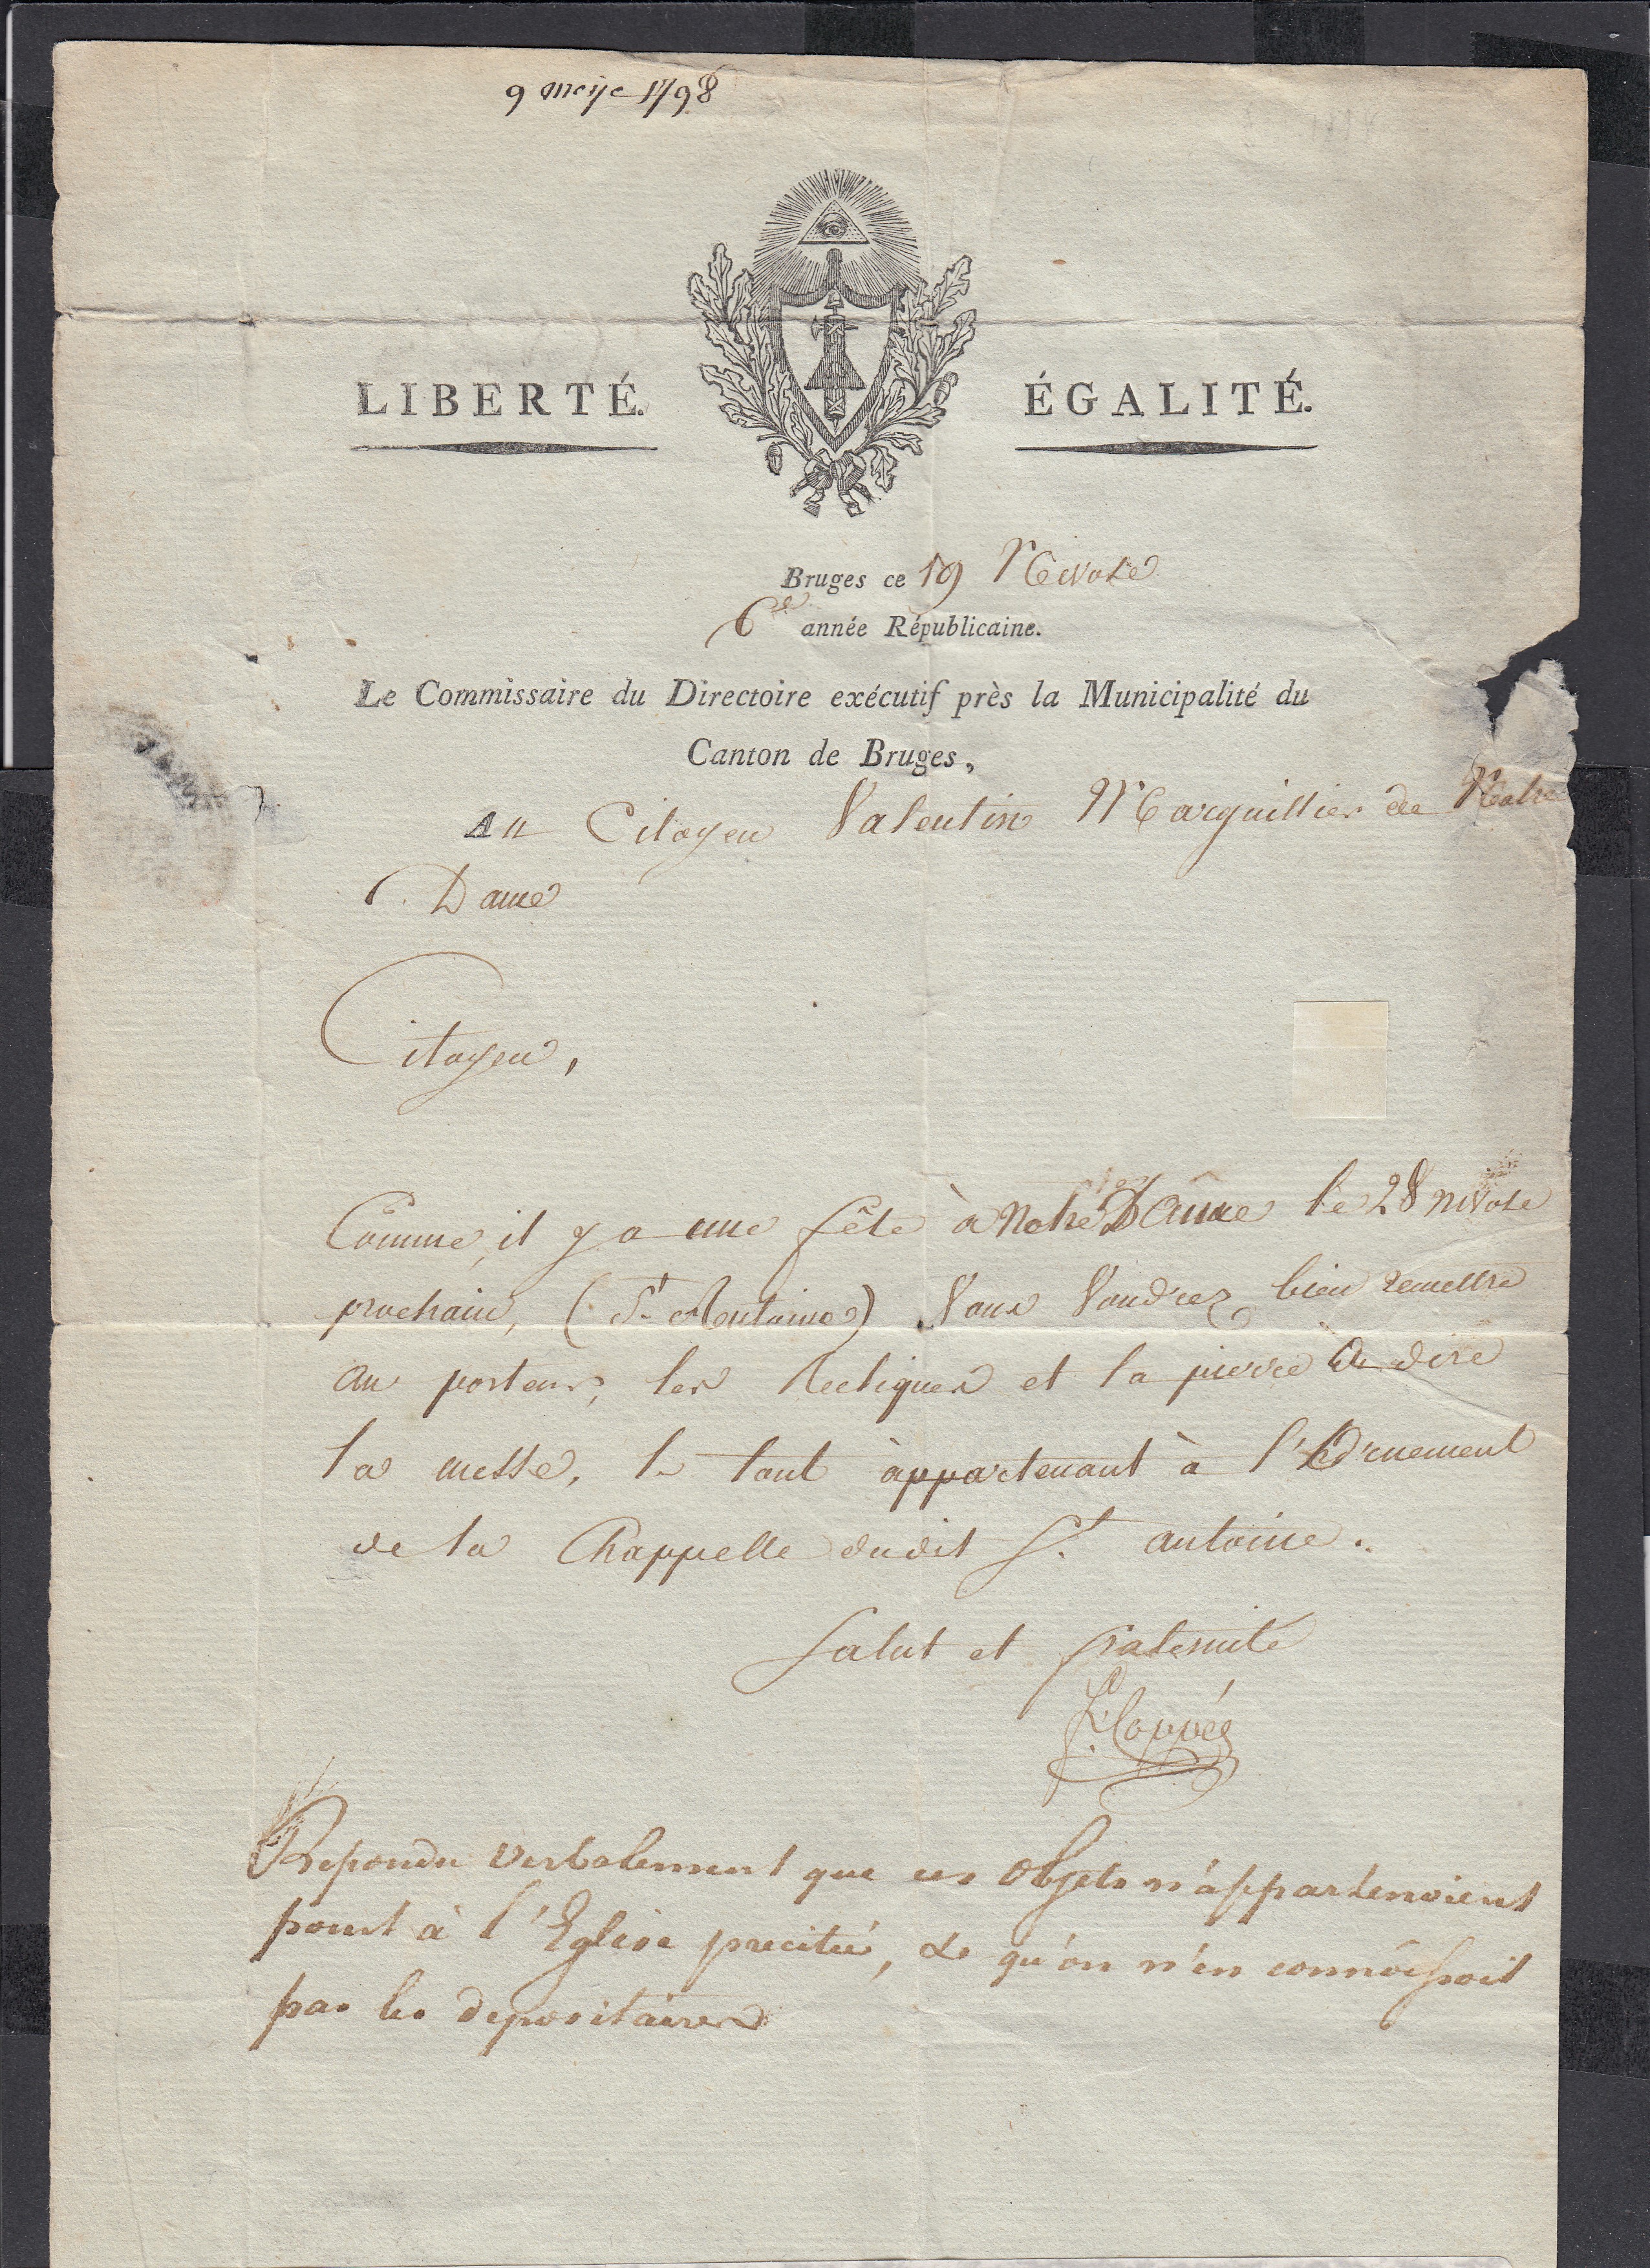 9 1798
LIBERTÉ. ÉGALITÉ.
Bruges ce 19 Nivose
6e année Républicaine.
Le Commissaire du Directoire exécutif près la Municipalité du
Canton de Bruges,
Au Citoyen Valentin Marguillier de Notre
Dame
Citoyen,
Comme il y a une fête à Notre Dame le 28 nivose
prochain, (St. Antoine) Vous Voudrez bien remettre
au porteur, les Recliques et la pierre à dire
la messe, le tout àppartenant à l'Ornement
de la Chappelle dudit St. antoine.
Salut et fraternité
F. Coppés
Repondu verbalement que ces objets n'appartenoient
point à l'Eglise precitée, & qu'on n'en connoissoit
pas les depositaires